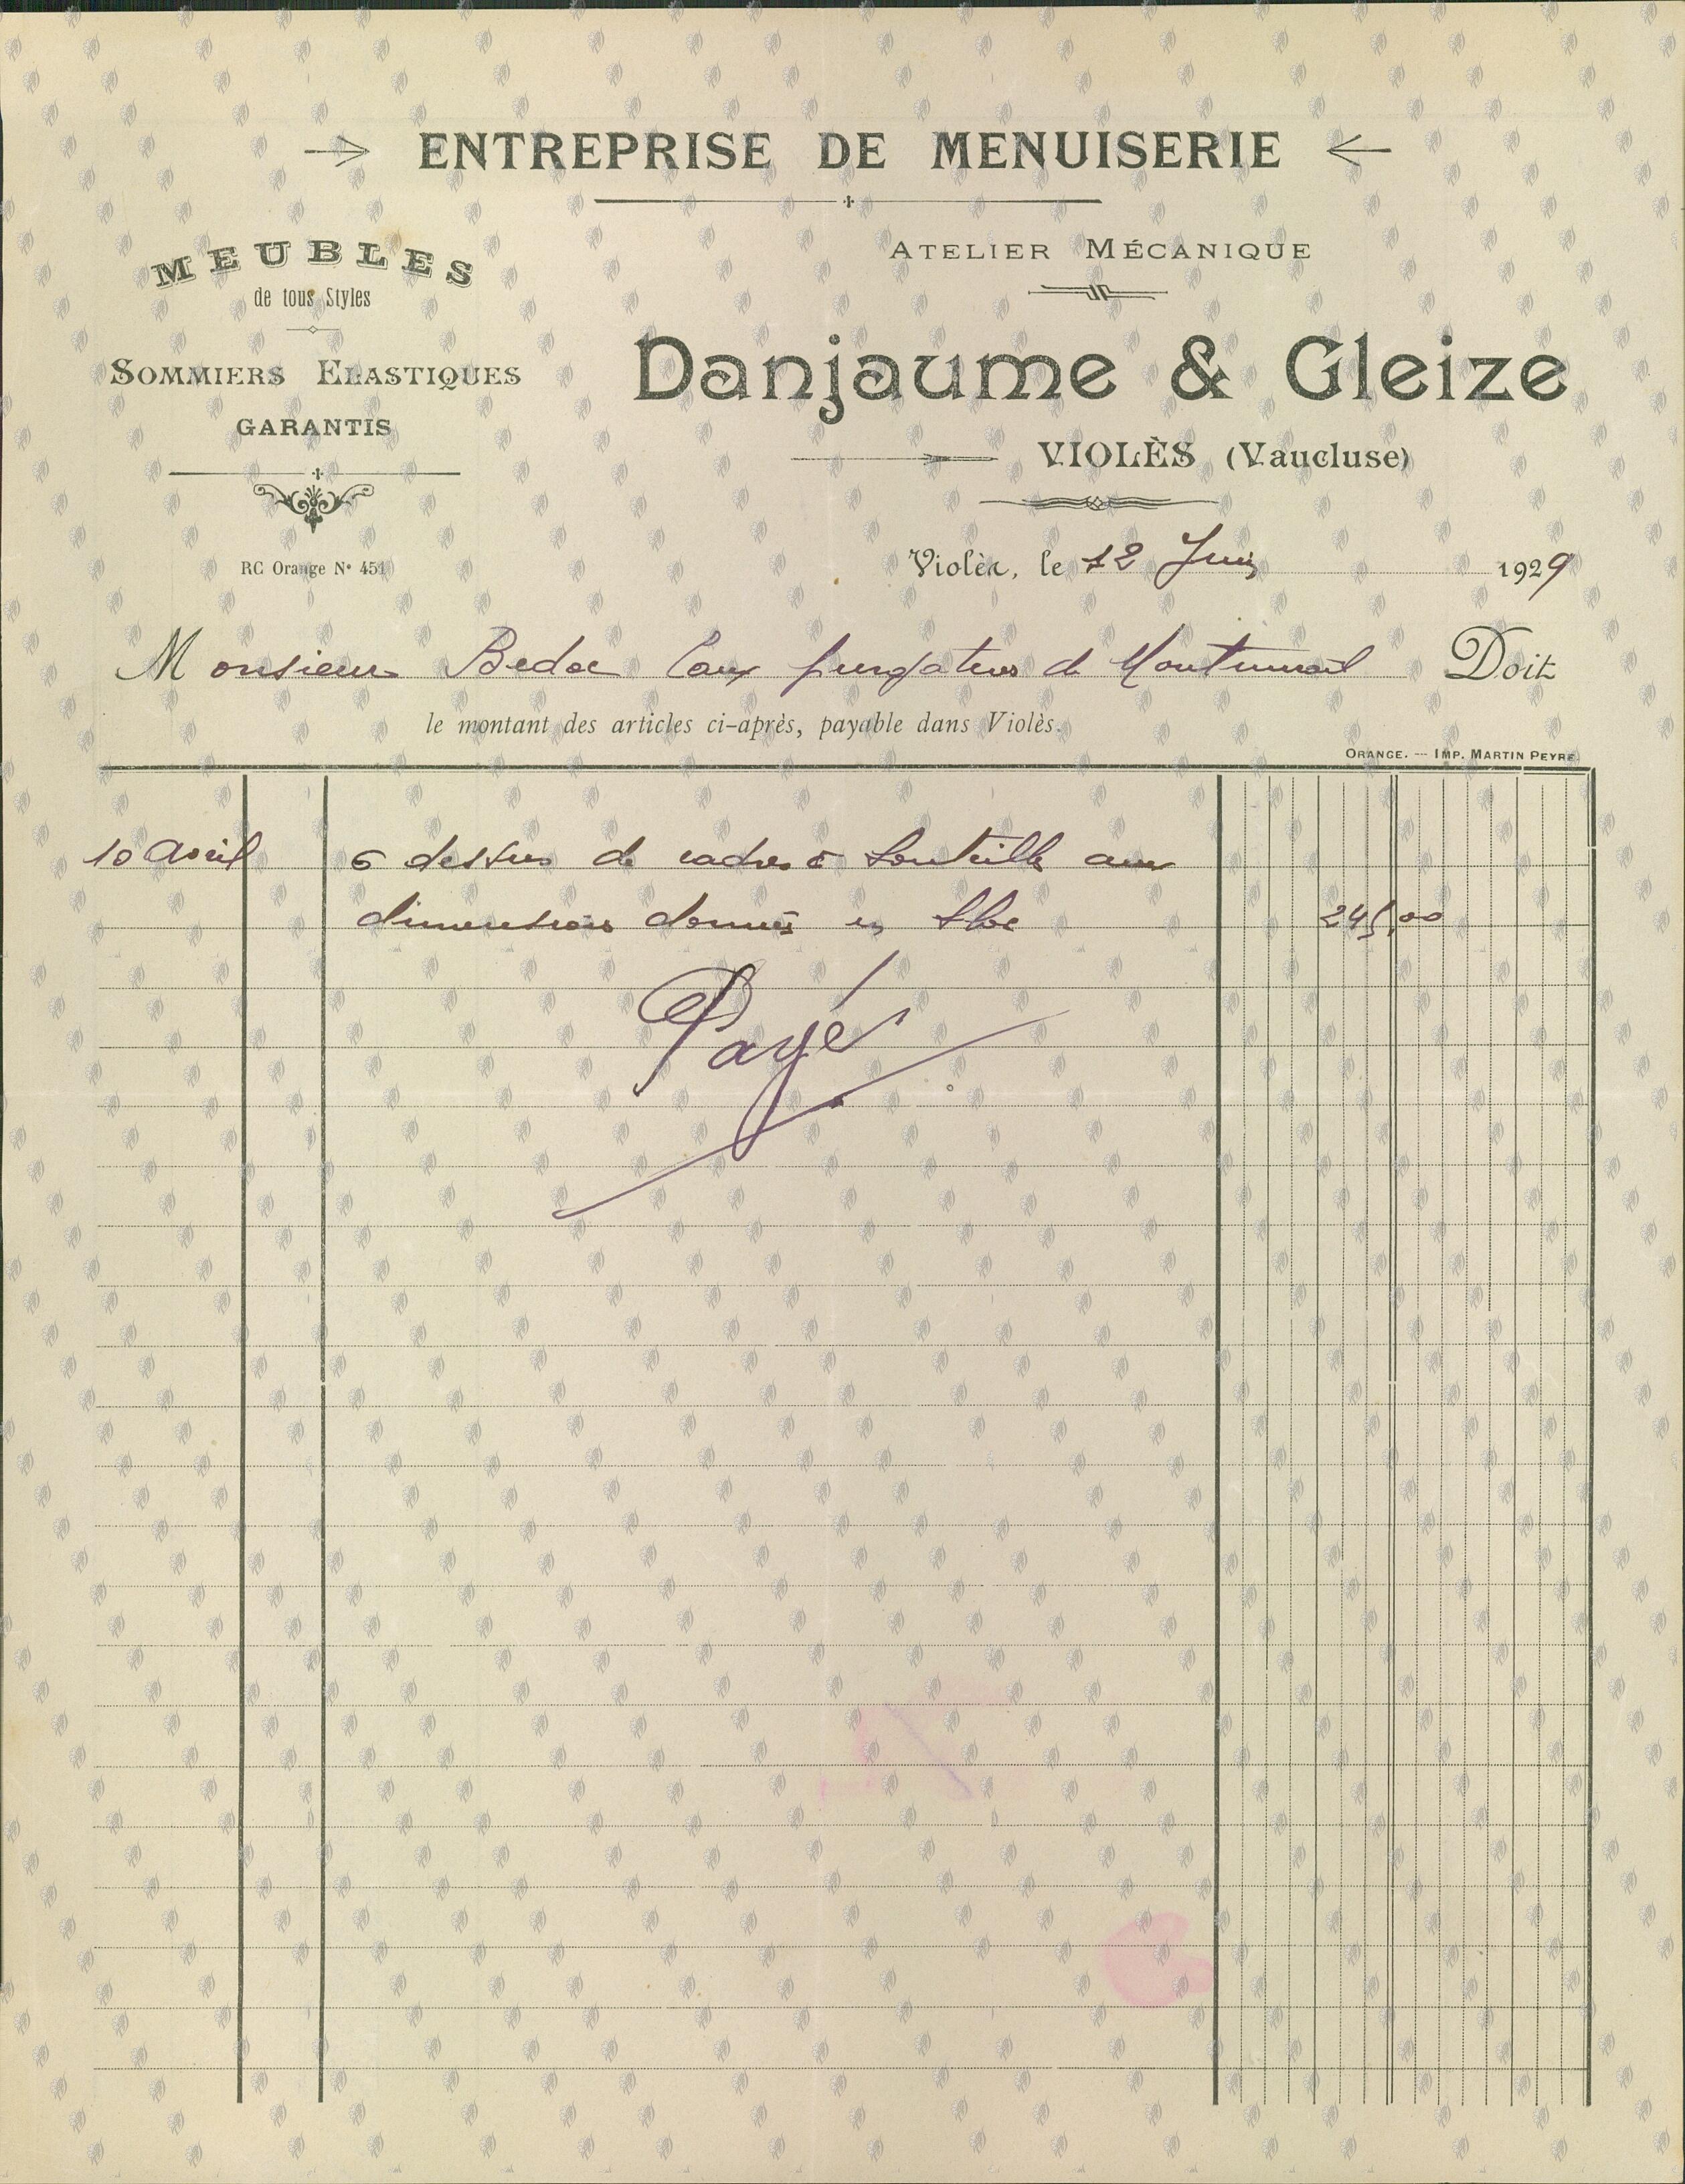 ENTREPRISE DE MENUISERIE
MEUBLES
de tous Styles
SOMMIERS ELASTIQUES
GARANTIS
RC Orange N° 451
ATELIER MÉCANIQUE
Danjaume & Gleize
VIOLÈS (Vaucluse)
Violès, le 12 Juin 1929
Monsieur Bedoc Eaux purgatives de Montmirail Doit
le montant des articles ci-après, payable dans Violès.
ORANGE. — IMP. MARTIN PEYRE
10 Avril 6 dessus de cadres à bouteille aux
dimensions données en 245,00
Payé